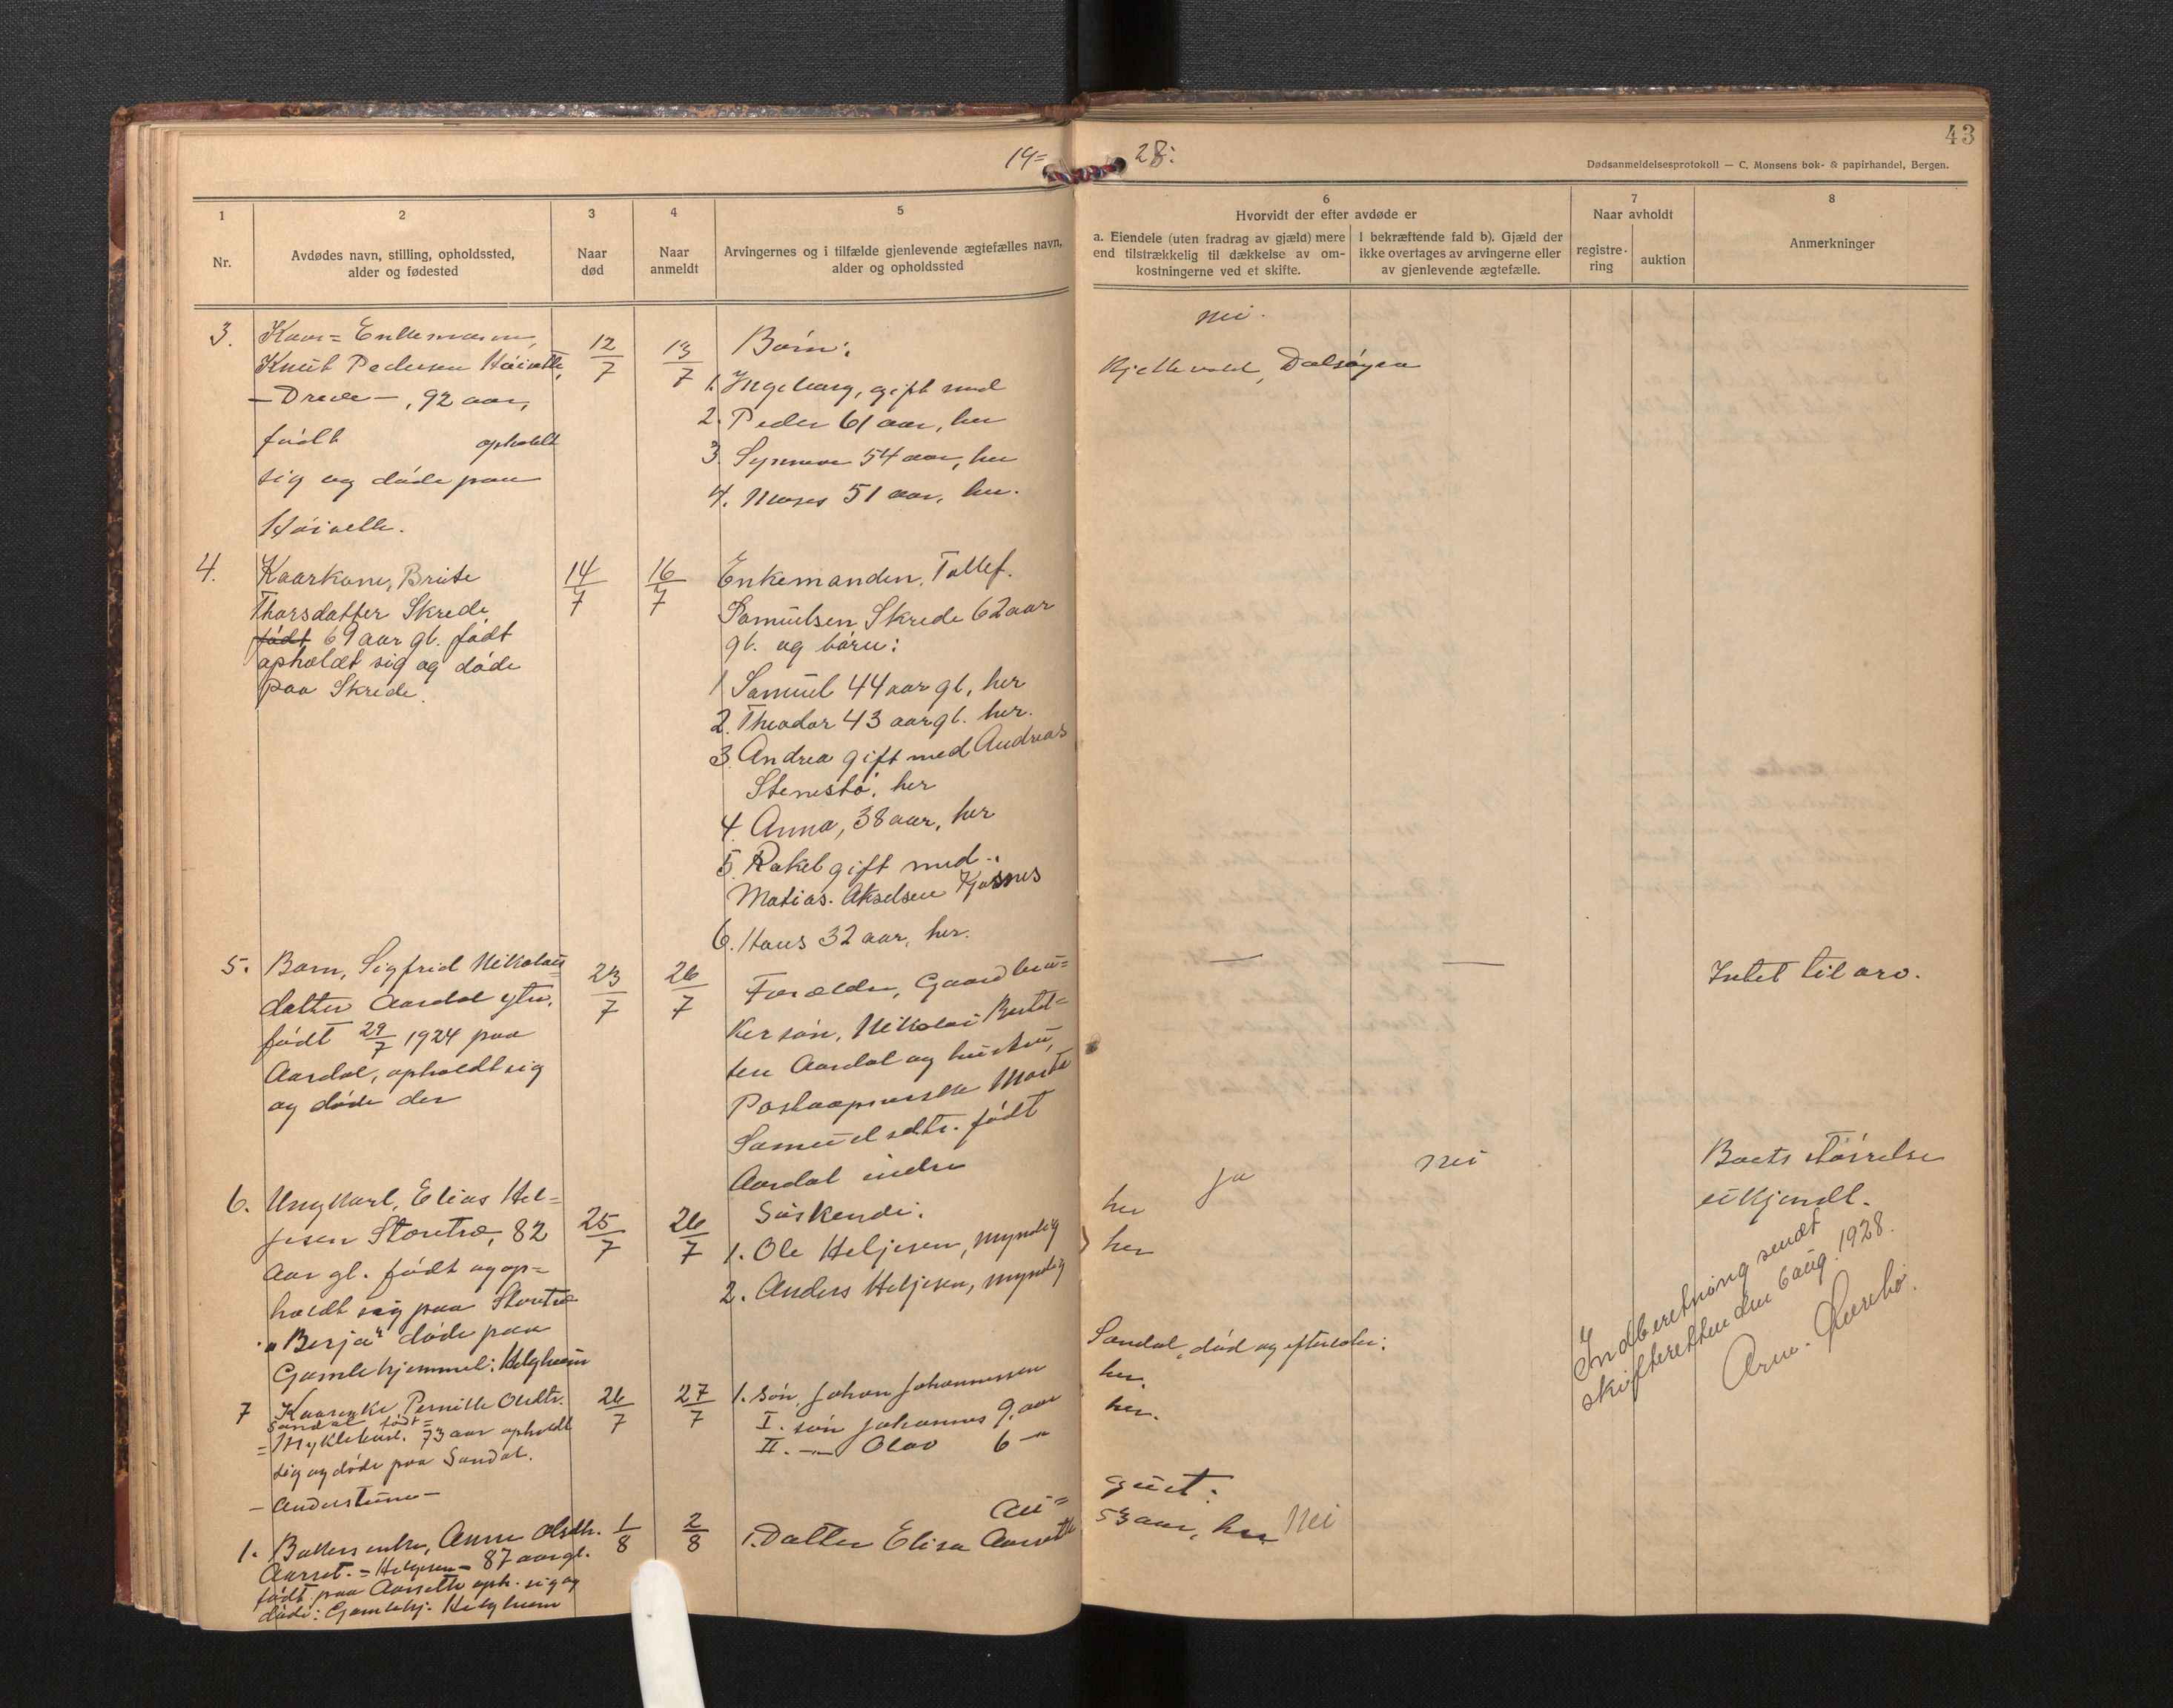 19= 28.
43
Dødsanmeldelsesprotokoll — C. Monsens bok- & papirhandel, Bergen.
1
Nr.
2
Avdødes navn, stilling, opholdssted,
alder og fødested
3
Naar
død
4
Naar
anmeldt
5
Arvingernes og i tilfælde gjenlevende ægtefælles navn,
alder og opholdssted
6
Hvorvidt der efter avdøde er
a. Eiendele (uten fradrag av gjæld) mere
end tilstrækkelig til dækkelse av om-
kostningerne ved et skifte.
I bekræftende fald b). Gjæld der
ikke overtages av arvingerne eller
av gjenlevende ægtefælle.
7
Naar avholdt
registre-
ring
auktion
8
Anmerkninger
3.
Kaar= Enkemann,
Knut Pedersen
— Drede —, 92 aar,
født opholdt
sig og døde paa
12/7
13/7
Børn:
1. Ingeborg, gift med
2. Peder 61 aar, her
3. Synneve 54 aar, her
4. Moses 51 aar, her.
nei.
Dalsøyra
4.
Kaarkone, Brite
Thorsdatter Skrede
født 69 aar gl. født
opholdt sig og døde
paa Skrede.
14/7
16/7
Enkemanden, Tollef.
Samuelsen Skrede 62 aar
gl. og børn:
1 Samuel 44 aar gl, her
2. Theodor 43 aar gl. her.
3. Andrea gift med Andreas
Stenestø, her
4. Anna, 38 aar, her
5. Rakel gift med
Matias. Akselsen Kjøsnes
6. Hans 32 aar, her.
5.
Barn, Sigfrid Nikolais
datter Aardal ytre,
født 29/7 1924 paa
Aardal, opholdt sig
og døde der
23/7
26/7
Forældre, Gaardbru=
ker søn, Nikolai Bertel=
sen Aardal og hustru,
Postaapnerske Marta
Samuelsdtr. født
Aardal indre
—
—
Intet til arv.
6.
Ungkarl, Elias Hel=
jesen Støretræ, 82
aar gl. født og op=
holdt sig paa Støretræ
„Berja" døde paa
Gamlehjemmet: Helgheim
25/7
26/7
Søskende:
1. Ole Heljesen, myndig
2. Anders Heljesen, myndig
her
her
ja
nei
Boets størrelse
ukjendt.
Indberetning sendt
skifteretten den 6 aug. 1928.
7
Kaarenke, Pernille Olsdtr.
Sandal født =
= Myklebust. 73 aar opholdt
sig og døde paa Sandal.
— Anderstunn —
26/7
27/7
Sandal, død og efterlader:
1. Søn, Johan Johannessen
I. søn Johannes 9, aar
II. —„— Olav 6 —„
her.
her.
August:
1.
Anne Olsdtr.
Aarset. = Helgesen = 87 aar gl.
født paa Aarseth oph. sig og
døde: Gamlehj. Helgheim
1/8
2/8
1. Datter Elisa Aarseth
53 aar, her
Nei